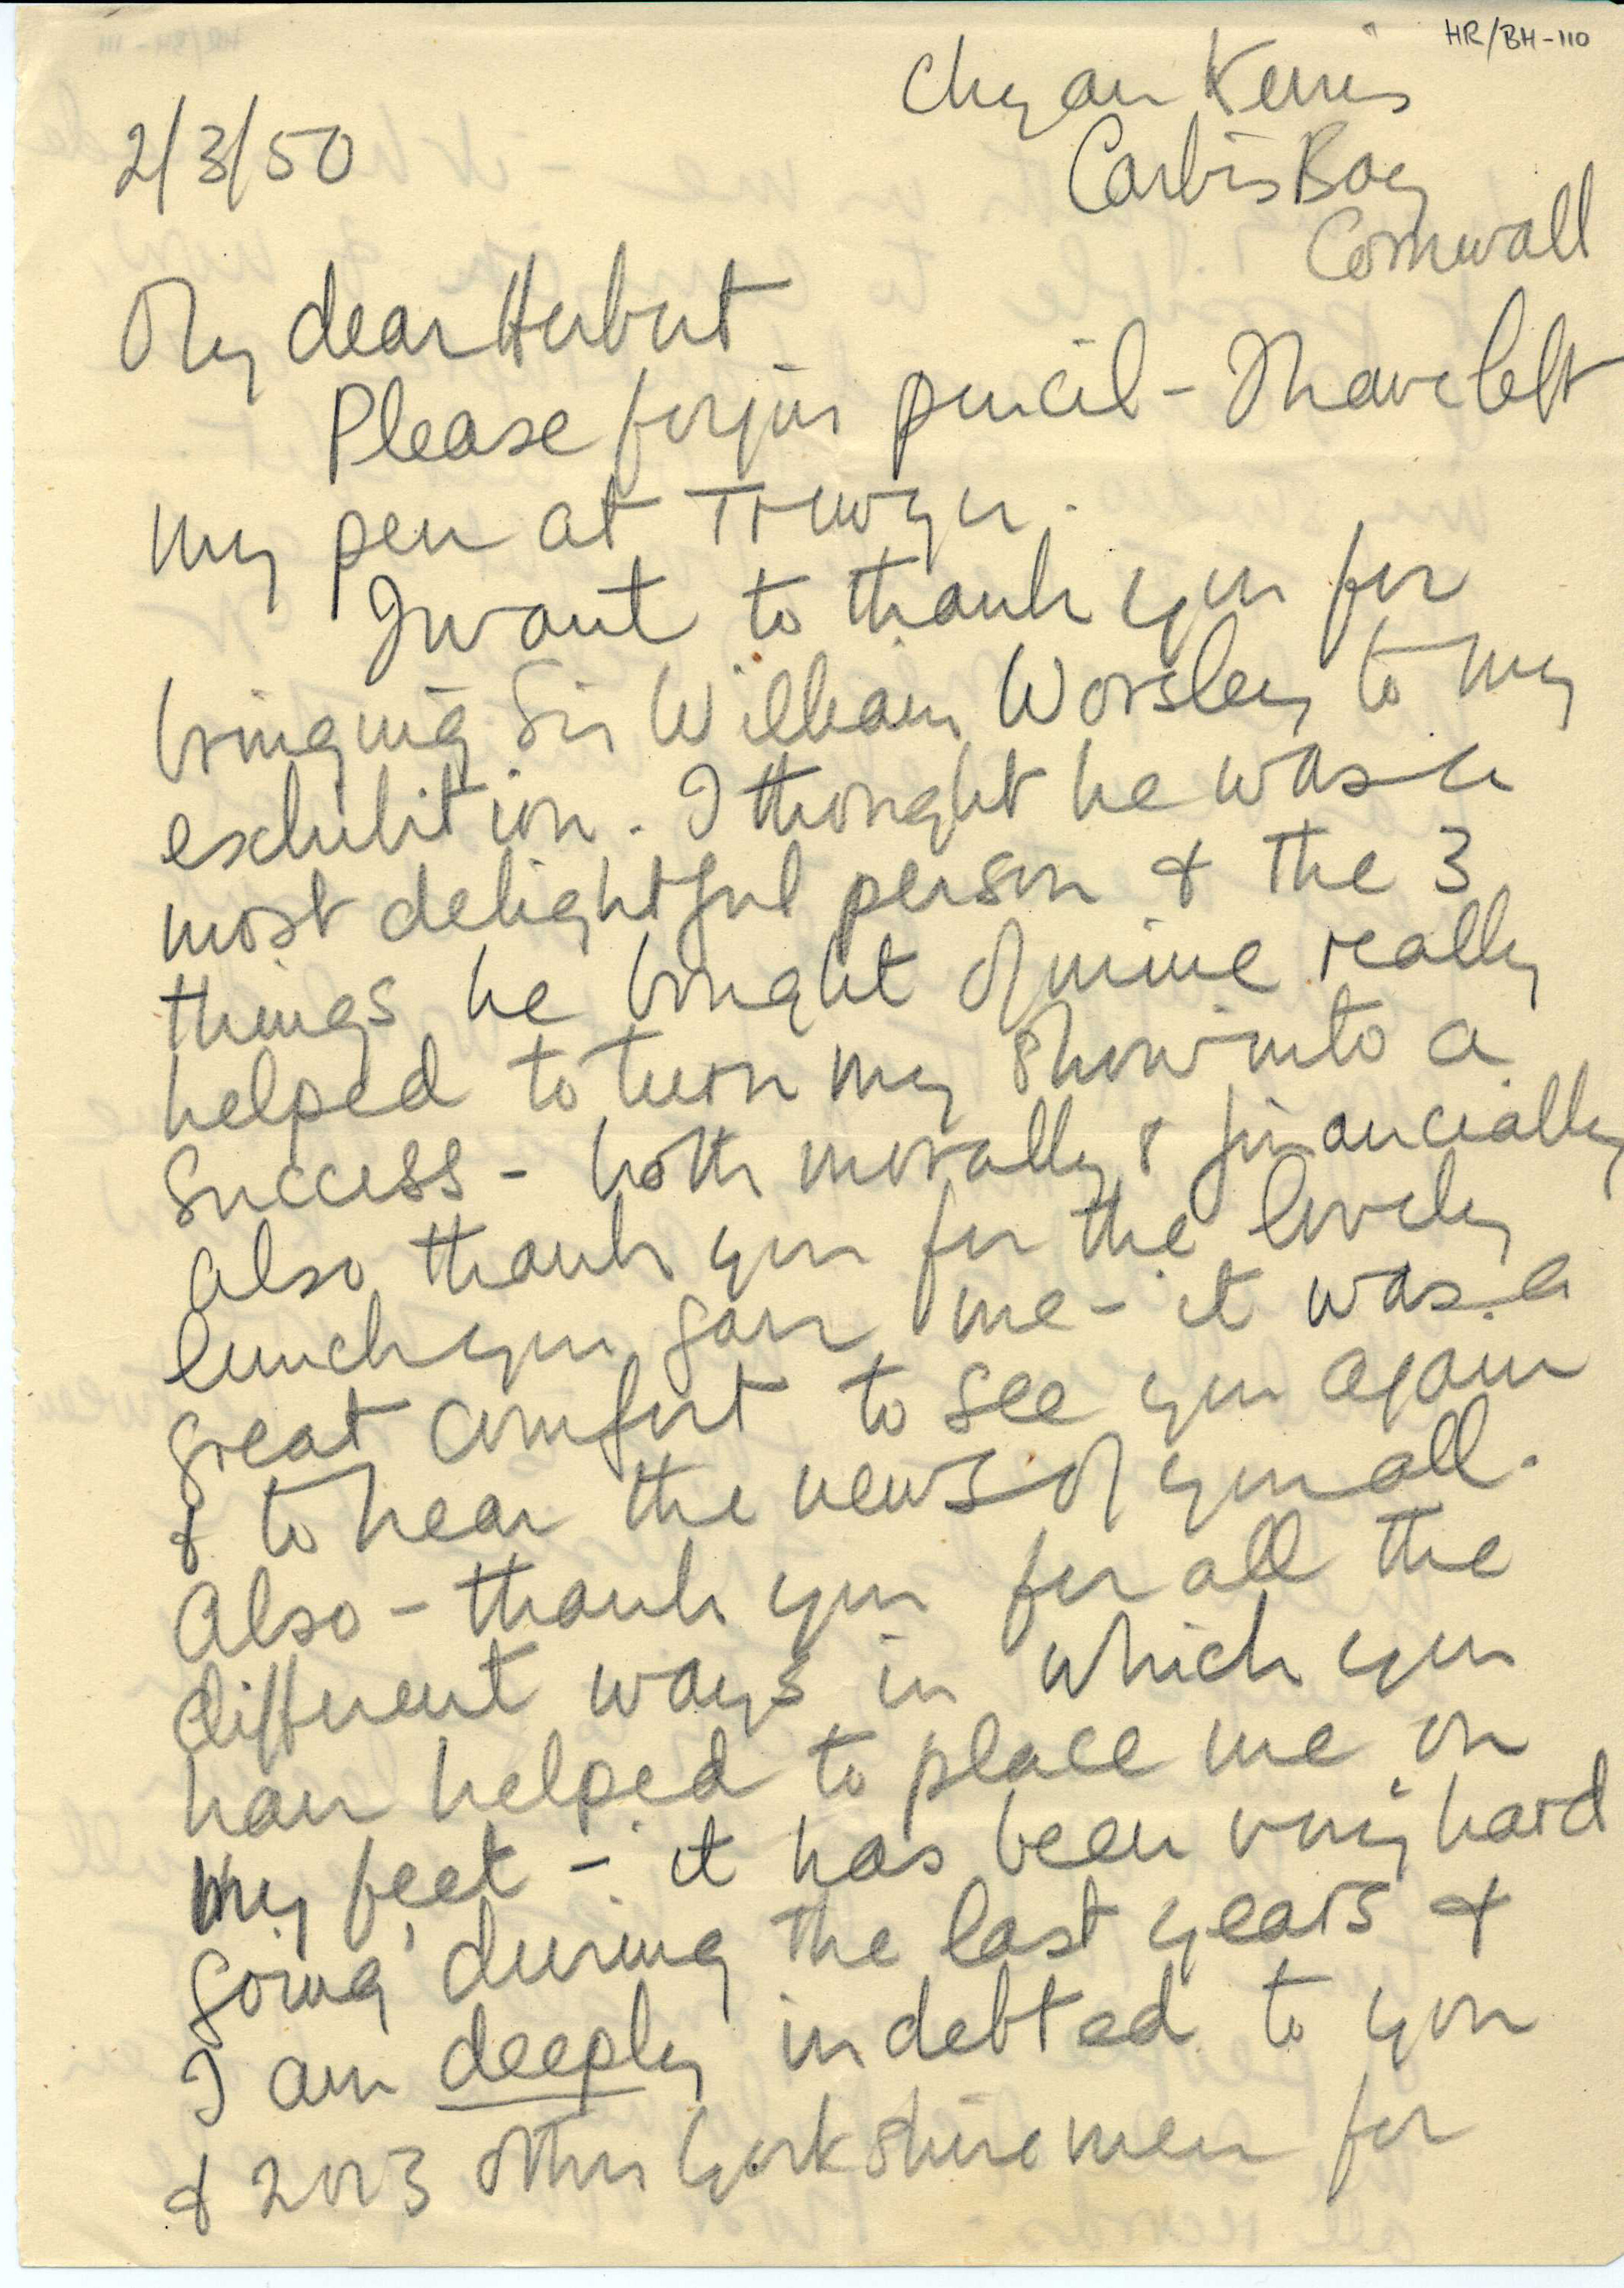 HR/BH-110
Chy an Kerris
Carbis Bay
Cornwall
2/3/50
My dear Herbert
Please forgive pencil - I have left
my pen at Trewyn.
I want to thank you for
bringing Sir William Worsley to my
exhibition. I thought he was a
most delightful person & the 3
things he bought of mine really
helped to turn my show into a
success - both morally & financially
also thank you for the lovely
lunch you gave me - it was a
great comfort to see you again
& to hear the news of you all.
Also - thank you for all the
different ways in which you
have helped to place me on
my feet - it has been very hard
going during the last years &
I am deeply indebted to you
& 2 or 3 other Yorkshiremen for